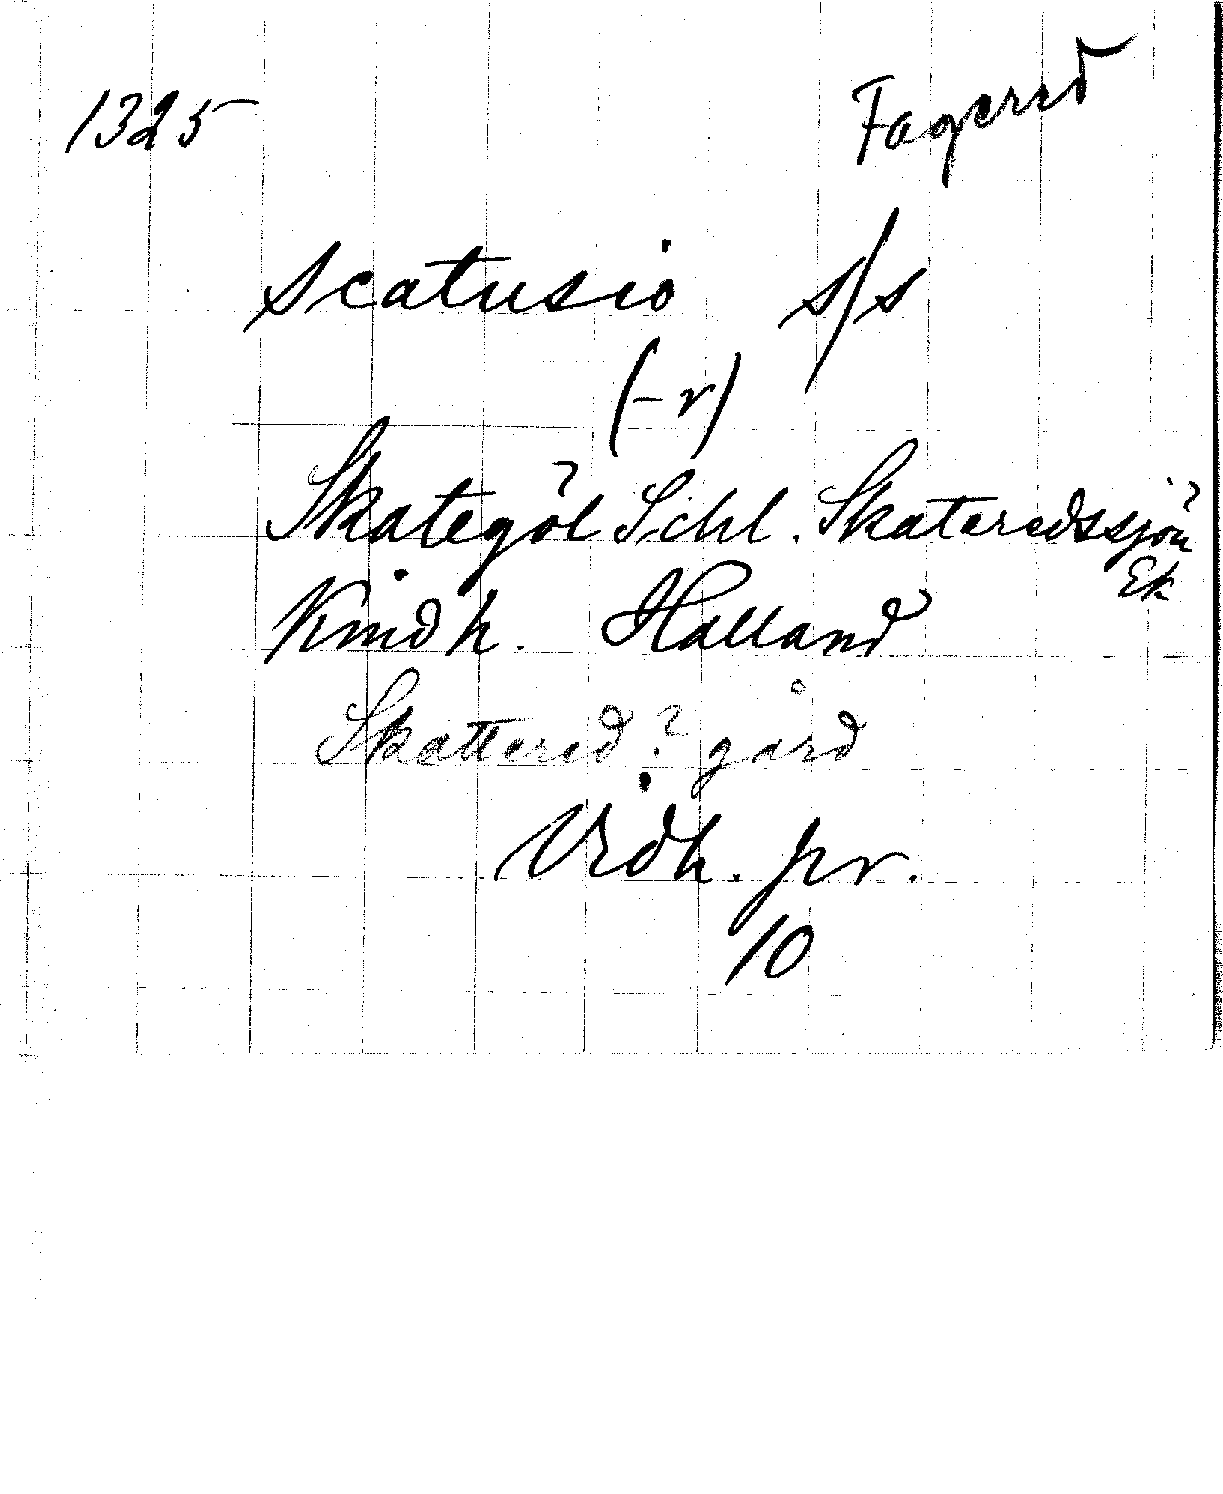 1325 Fagered
scatusio s/s
(-r)
Skategöl Schl. Skateredssjön
Ek
Kindh. Halland
Skattered? gård
Vidh. pr.
10